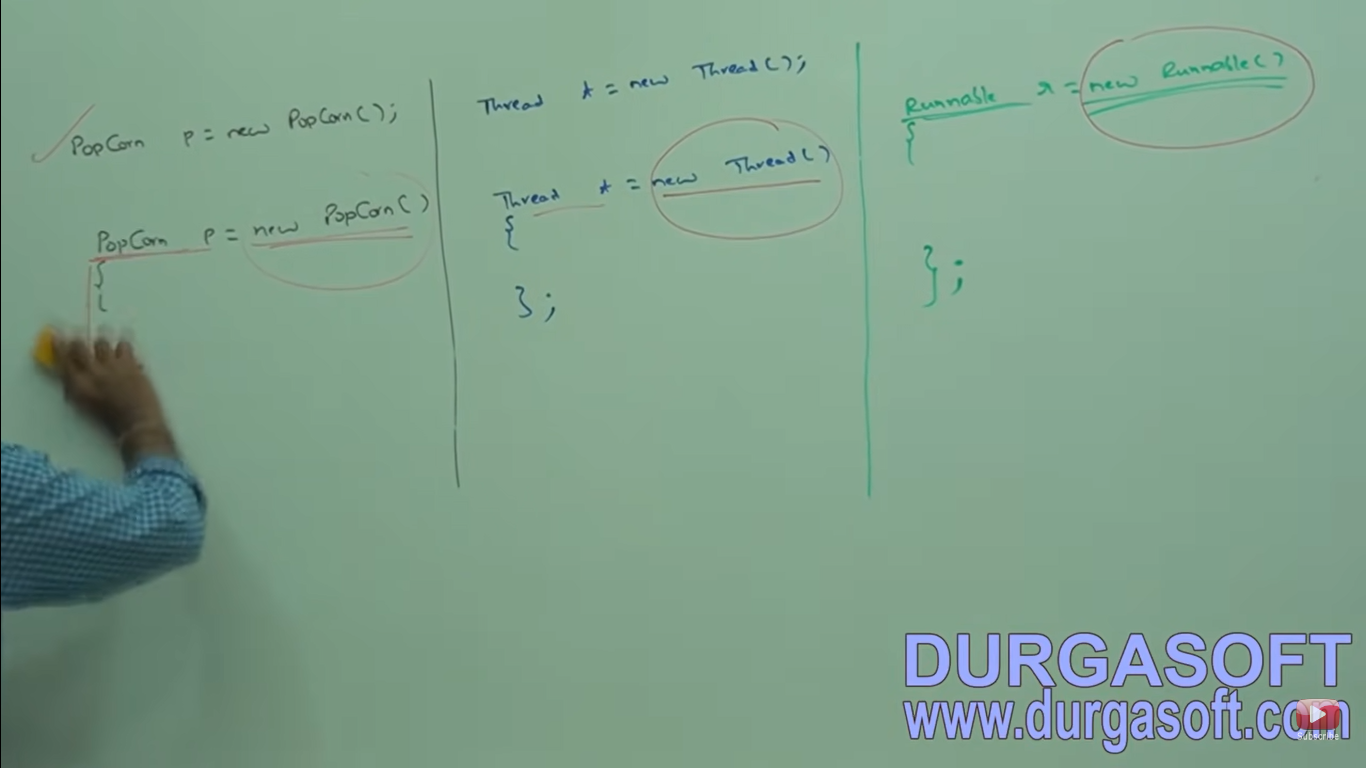 PopCorn p = new PopCorn();
PopCorn p = new PopCorn()
{
{
Thread t = new Thread();
Thread t = new Thread()
{
};
Runnable r = new Runnable()
{
};
DURGASOFT
www.durgasoft.com
Subscribe